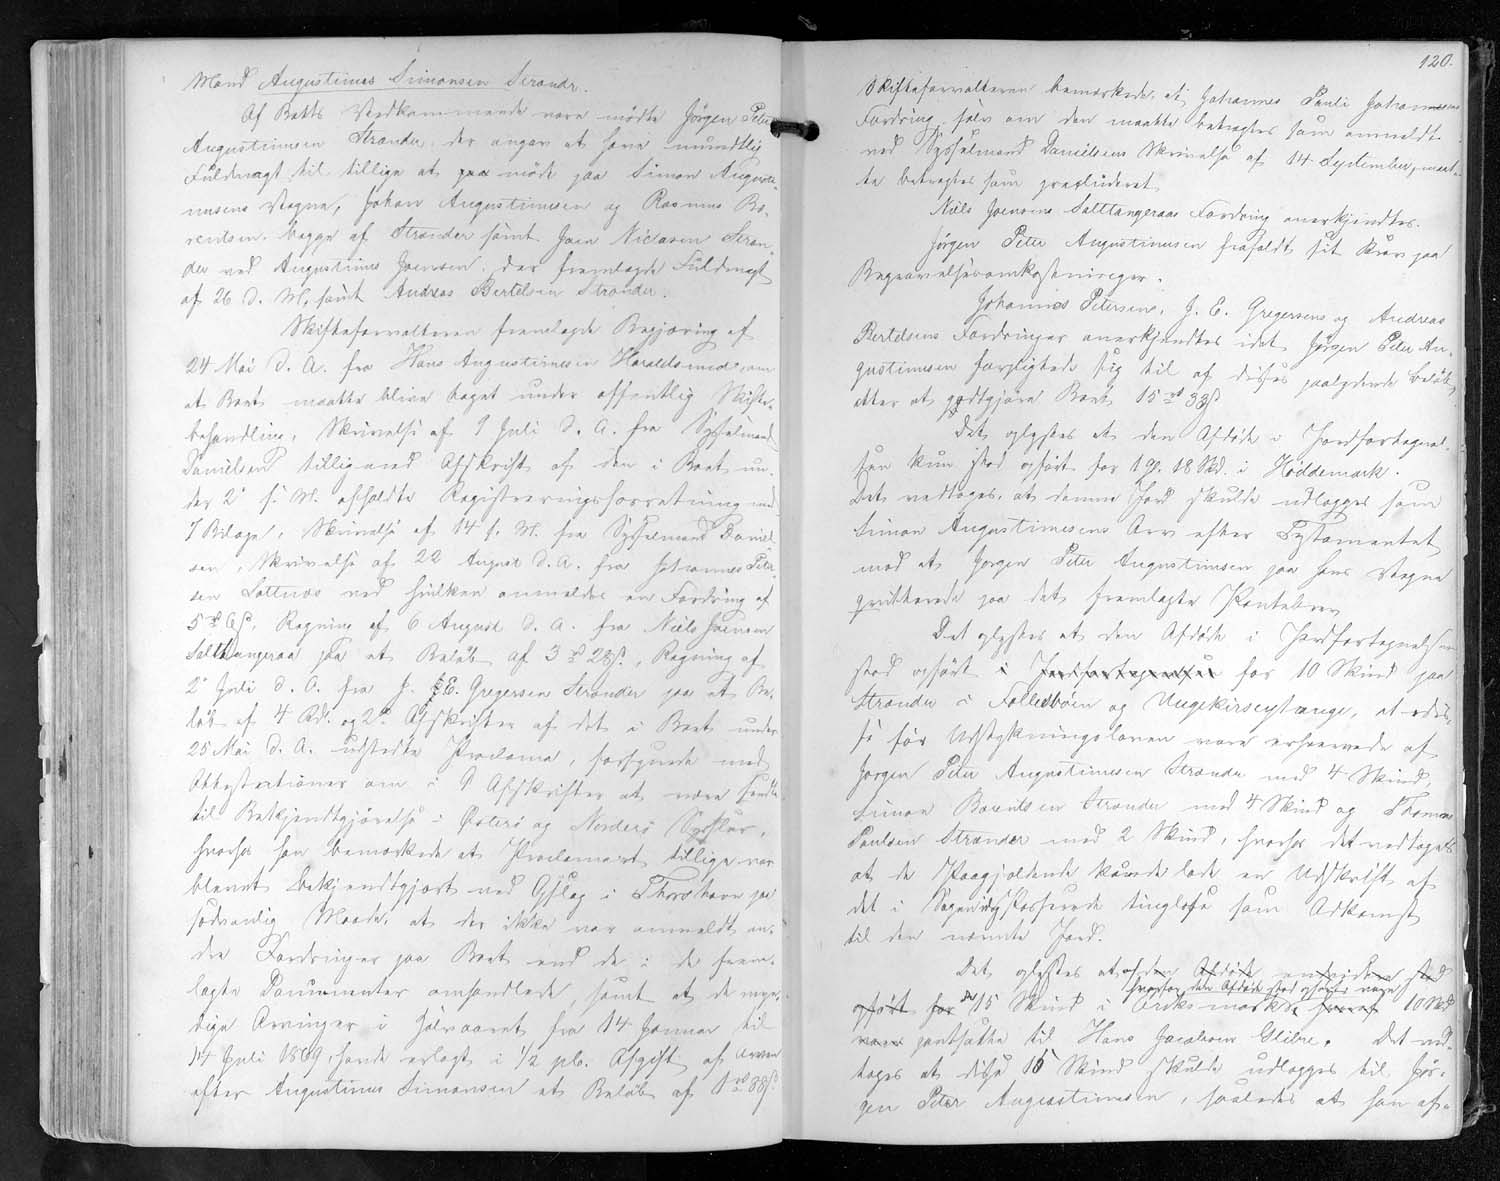 Mand Augustinus Simonsen Strændr.
Af Boets Vedkommende vare mødte Jörgen Peter
Augustinusen Strænder, der angav at have mundtlig
Fuldmagt til tillige at møde paa Simon Augusti-
nusens Vegne, Johan Augustinusen og Rasmus Ba-
rentsen, begge af Strænder samt Joen Niclasen Stræn-
der ved Augustinus Joensen, der fremlagde Fuldmagt
af 26 d. M. samt Andreas Bertelsen Strænder.
Skifteforvalteren fremlagde Begjæring af
24 Mai d. A. fra Hans Augustinusen Haraldsund, om
at Boet maatte blive taget under offentlig Skifte-
behandling, Skrivelse af 9 Juli d. A. fra Sysselmand
Danielsen tilligemed Afskrift af den i Boet un-
der 2' f. M. afholdte Registreringsforretning med
7 Bilage, Skrivelse af 14 f. M. fra Sysselmand Daniel-
sen, Skrivelse af 22 August d. A. fra Johannes Peter-
sen Sottnæs ved hvilken anmeldes en Fordring af
5 rd 6 s, Regning af 6 August d. A. fra Niels Joensen
Salttangeraa paa et Beløb af 3 rd 28 s, Regning af
2' Juli d. A. fra J. E. Gregersen Strænder paa et Be-
løb af 4 Rd. og 2de Afskrifter af det i Boet under
25 Mai d. A. udstedte Proclama, forsynede med
Attestationer om i 9 Afskrifter at være sendte
til Bekjendtgjørelse i Østerø og Norderø Syssler,
hvorhos han bemærkede at Proclamaet tillige var
blevet bekjendtgjort ved Opslag i Thorshavn paa
sædvanlig Maade, at der ikke var anmeldt an-
dre Fordringer paa Boet end de i de frem-
lagte Documenter omhandlede, samt at de myn-
dige Arvinger i Halvaaret fra 14 Januar til
14 Juli 1869 havde erlagt i ½ pCt. Afgift af Arven
efter Augustinus Simonsen et Beløb af 1 rd 38 s.
120.
Skifteforvalteren bemærkede, at Johannes Pauli Johannesens
Fordring, selv om den maatte betragtes som anmeldt
ved Sysselmand Danielsens Skrivelse af 14 September, maat-
te betragtes som præcluderet.
Niels Joensens Salttangeraas Fordring anerkjendtes.
Jörgen Peter Augustinusen frafaldt sit Krav paa
Begravelsesomkostninger.
Johannes Petersens, J. E. Gregersens og Andreas
Bertelsens Fordringer anerkjendtes idet Jörgen Peter Au-
gustinusen forpligtede sig til af disses paalydende Beløb
atter at godtgjøre Boet 15 rd 33 s
Det oplystes at den Afdøde i Jordfortegnel-
sen kun stod opført for 1 G. 18 Skd. i Høddemark.
Det vedtoges, at denne Jord skulde udlægges som
Simon Augustinusens Arv efter Testamentet
mod at Jørgen Peter Augustinusen paa hans Vegne
qvitterede paa det fremlagte Pantebrev
Det oplystes at den Afdøde i Jordfortegnelsen
stod opført i Jordfortegnelsen for 10 Skind paa
Strænder i Follesbøen og Ungekirseyrange, at dis-
se før Udstykningsloven vare erhvervede af
Jørgen Peter Augustinusen Strænder med 4 Skind,
Simon Barentsen Strænder med 4 Skind og Thomas
Paulsen Strænder med 2 Skind, hvorfor det vedtoges
at de Paagjældende kunde lade en Udskrift af
det i Sagen Passerede tinglæse som Adkomst
til den nævnte Jord.
Det oplystes at af den Afdøde endvidere stod
hvorfor den Afdøde stod opført vare
opført for de 15 Skind i Oriksmark, hvoraf 10 Skd
vare pantsatte til Hans Jacobsen Glibre. Det ved-
toges at disse 15 Skind skulde udlægges til Jør-
gen Peter Augustinusen, saaledes at han af-